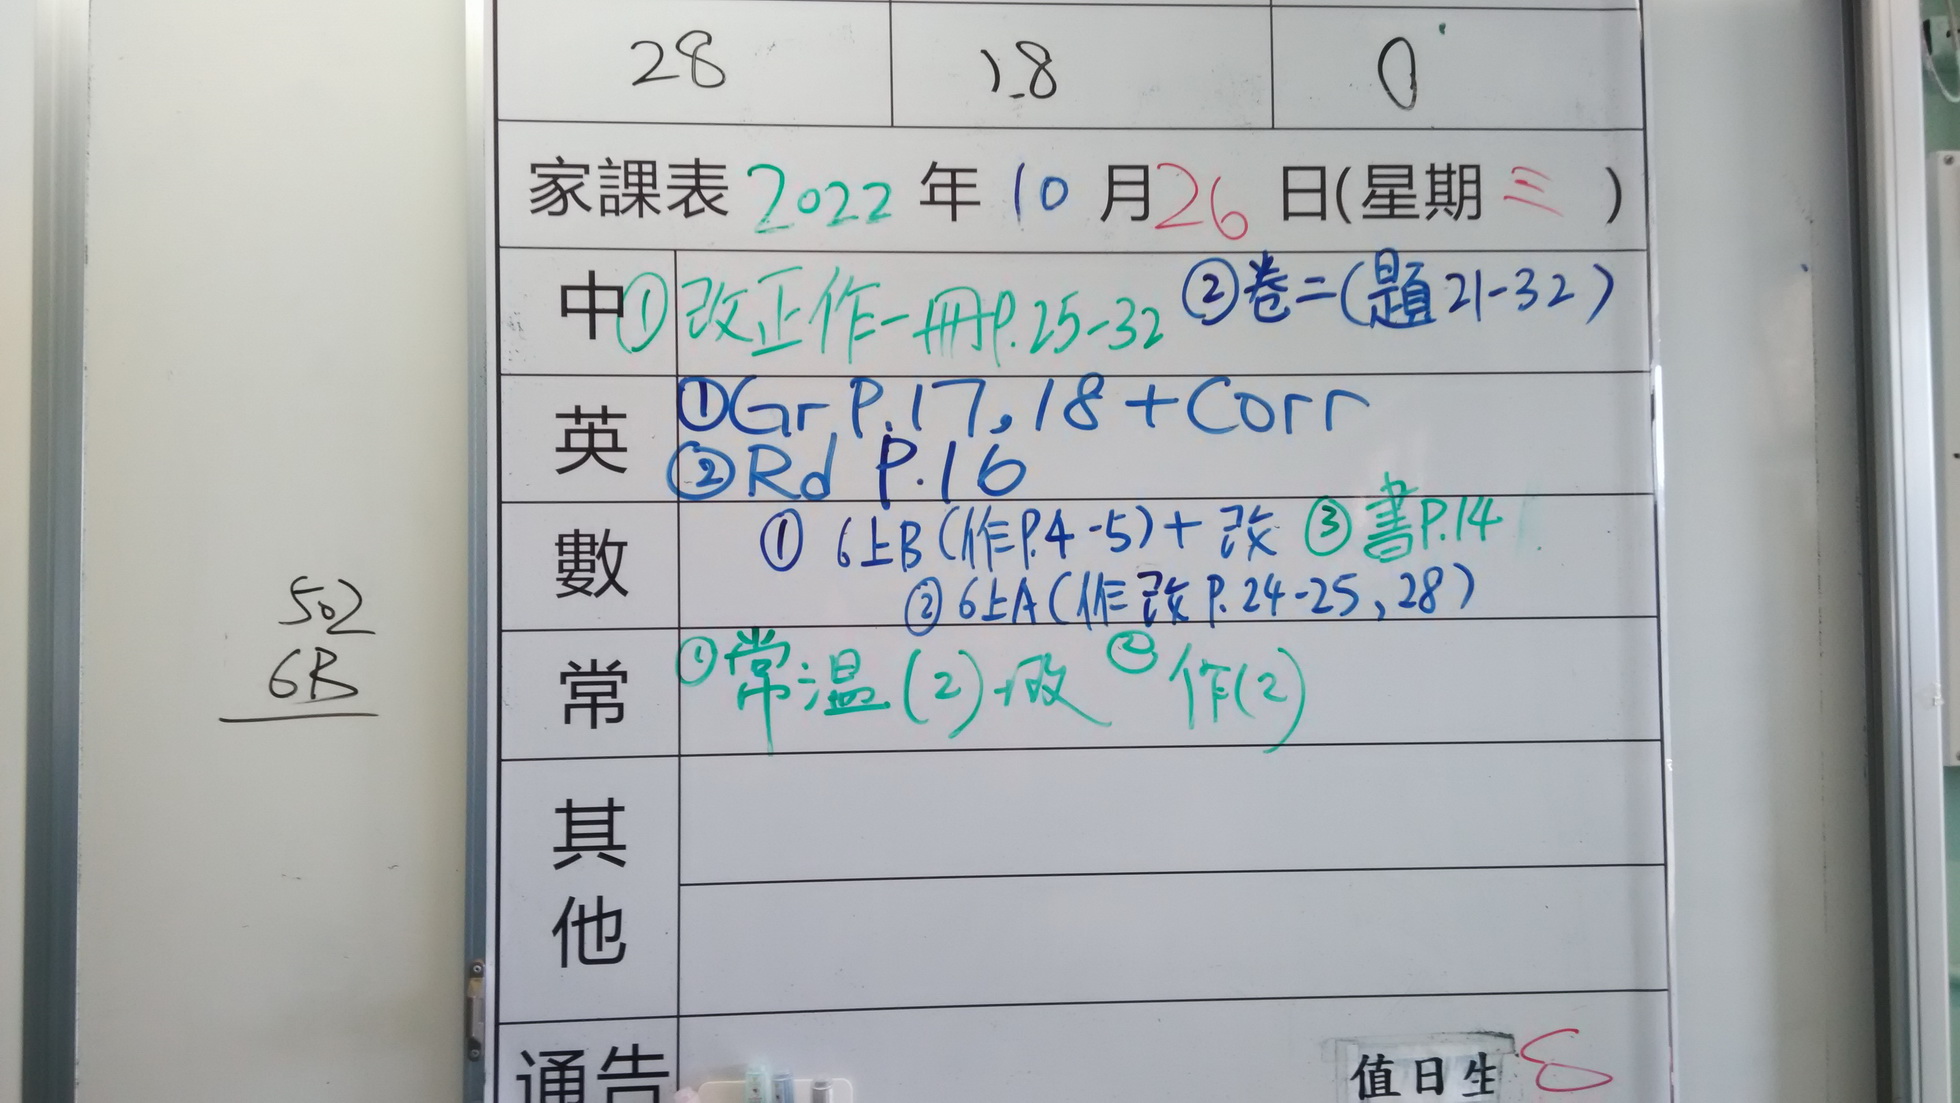 28 28 0
家課表 2022 年 10 月 26 日(星期 三 )
中 ①改正作一冊P.25-32 ②卷二(題21-32)
英 ①Gr P.17,18 + Corr
②Rd P.16
數 ① 6上B(作P.4-5)+ 改 ③書P.14
②6上A(作改P.24-25,28)
502
6B
常 ①常温(2)+改 ②作(2)
其他
通告
值日生 8